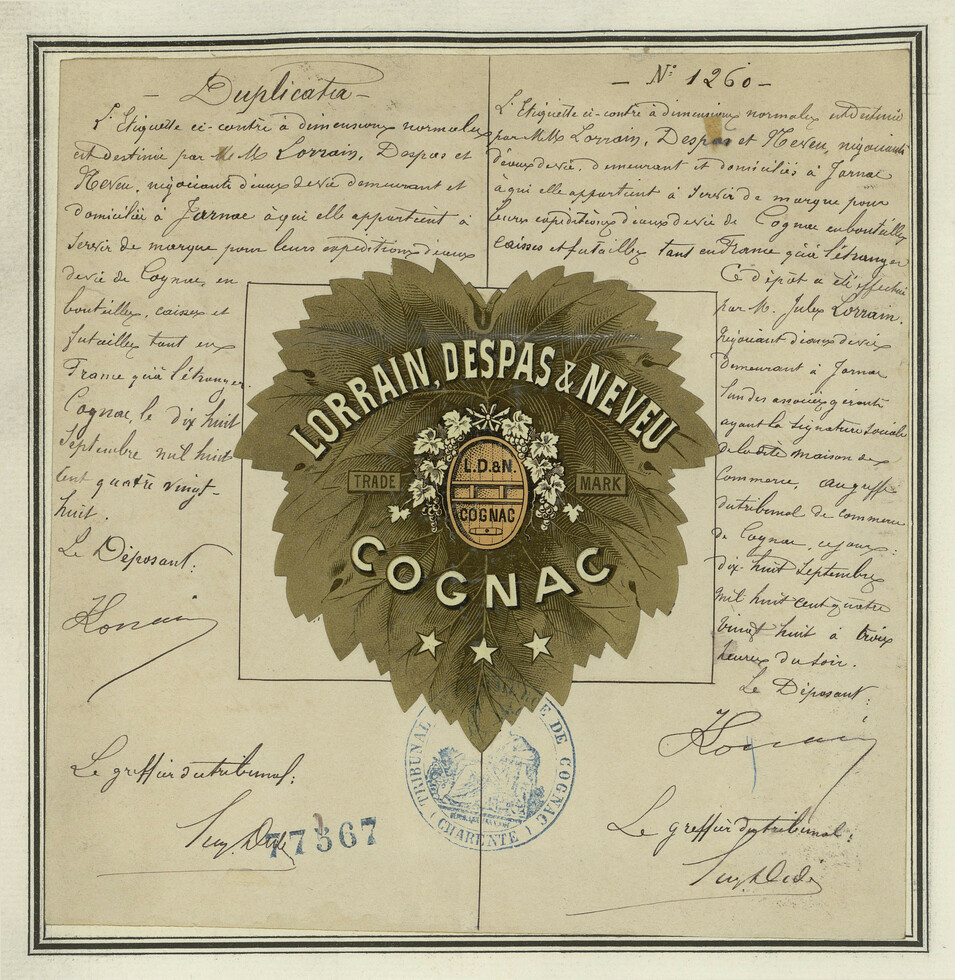 Duplicata
L'Etiquette ci-contre à dimensions normales
est destinée par M M Lorrain, Despas et
Neveu, négociants d'eaux de vie demeurant et
domiciliés à Jarnac à qui elle appartient à
servir de marque pour leurs expéditions d'eaux
de vie de Cognac, en
bouteilles, caisses et
futailles tant en
France qu'à l'étranger.
Cognac, le dix huit
Septembre mil huit
cent quatre vingt-
huit.
Le Déposant:
Lorrain
Le greffier du tribunal:
77567
N° 1260
L'Etiquette ci-contre à dimensions normales est destinée
par M M Lorrain, Despas et Neveu, négociants
d'eaux de vie, demeurant et domiciliés à Jarnac
à qui elle appartient à servir de marque pour
leurs expéditions d'eaux de vie de Cognac en bouteilles
caisses et futailles tant en France qu'à l'étranger
Ce dépôt a été effectué
par M. Jules Lorrain.
Négociant d'eaux de vie
demeurant à Jarnac
l'un des associés gérants
ayant la signature sociale
de la dite maison de
Commerce, au greffe
du tribunal de commerce
de Cognac, ce jour:
dix-huit Septembre
mil huit cent quatre
vingt huit à trois
heures du soir.
Le Déposant:
Lorrain
Le greffier du tribunal:
LORRAIN, DESPAS & NEVEU
TRADE MARK
L.D.&N.
COGNAC
COGNAC
TRIBUNAL DE COGNAC
(CHARENTE)